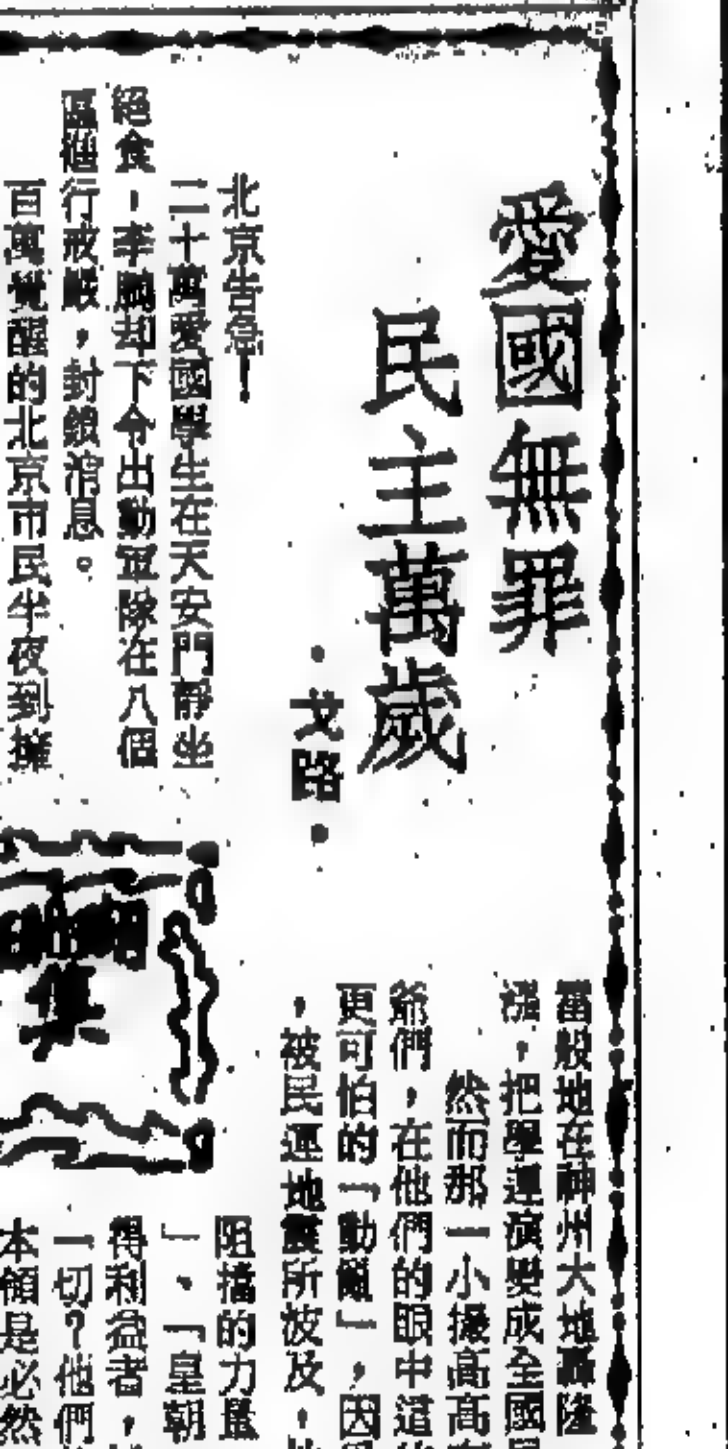 愛國無罪
民主萬歲
•戈路•
北京告急！
二十萬愛國學生在天安門靜坐
絕食，李鵬却下令出動軍隊在八個
區進行戒嚴，封鎖消息。
百萬覺醒的北京市民半夜到擁
集
當般地在神州大地轟隆
漲，把學運演變成全國
然而那一小撮高高
爺們，在他們的眼中這
更可怕的「動亂」，因
，被民運地震所波及，
阻擋的力量
」、「皇朝
得利益者，
一切？他們
本領是必然